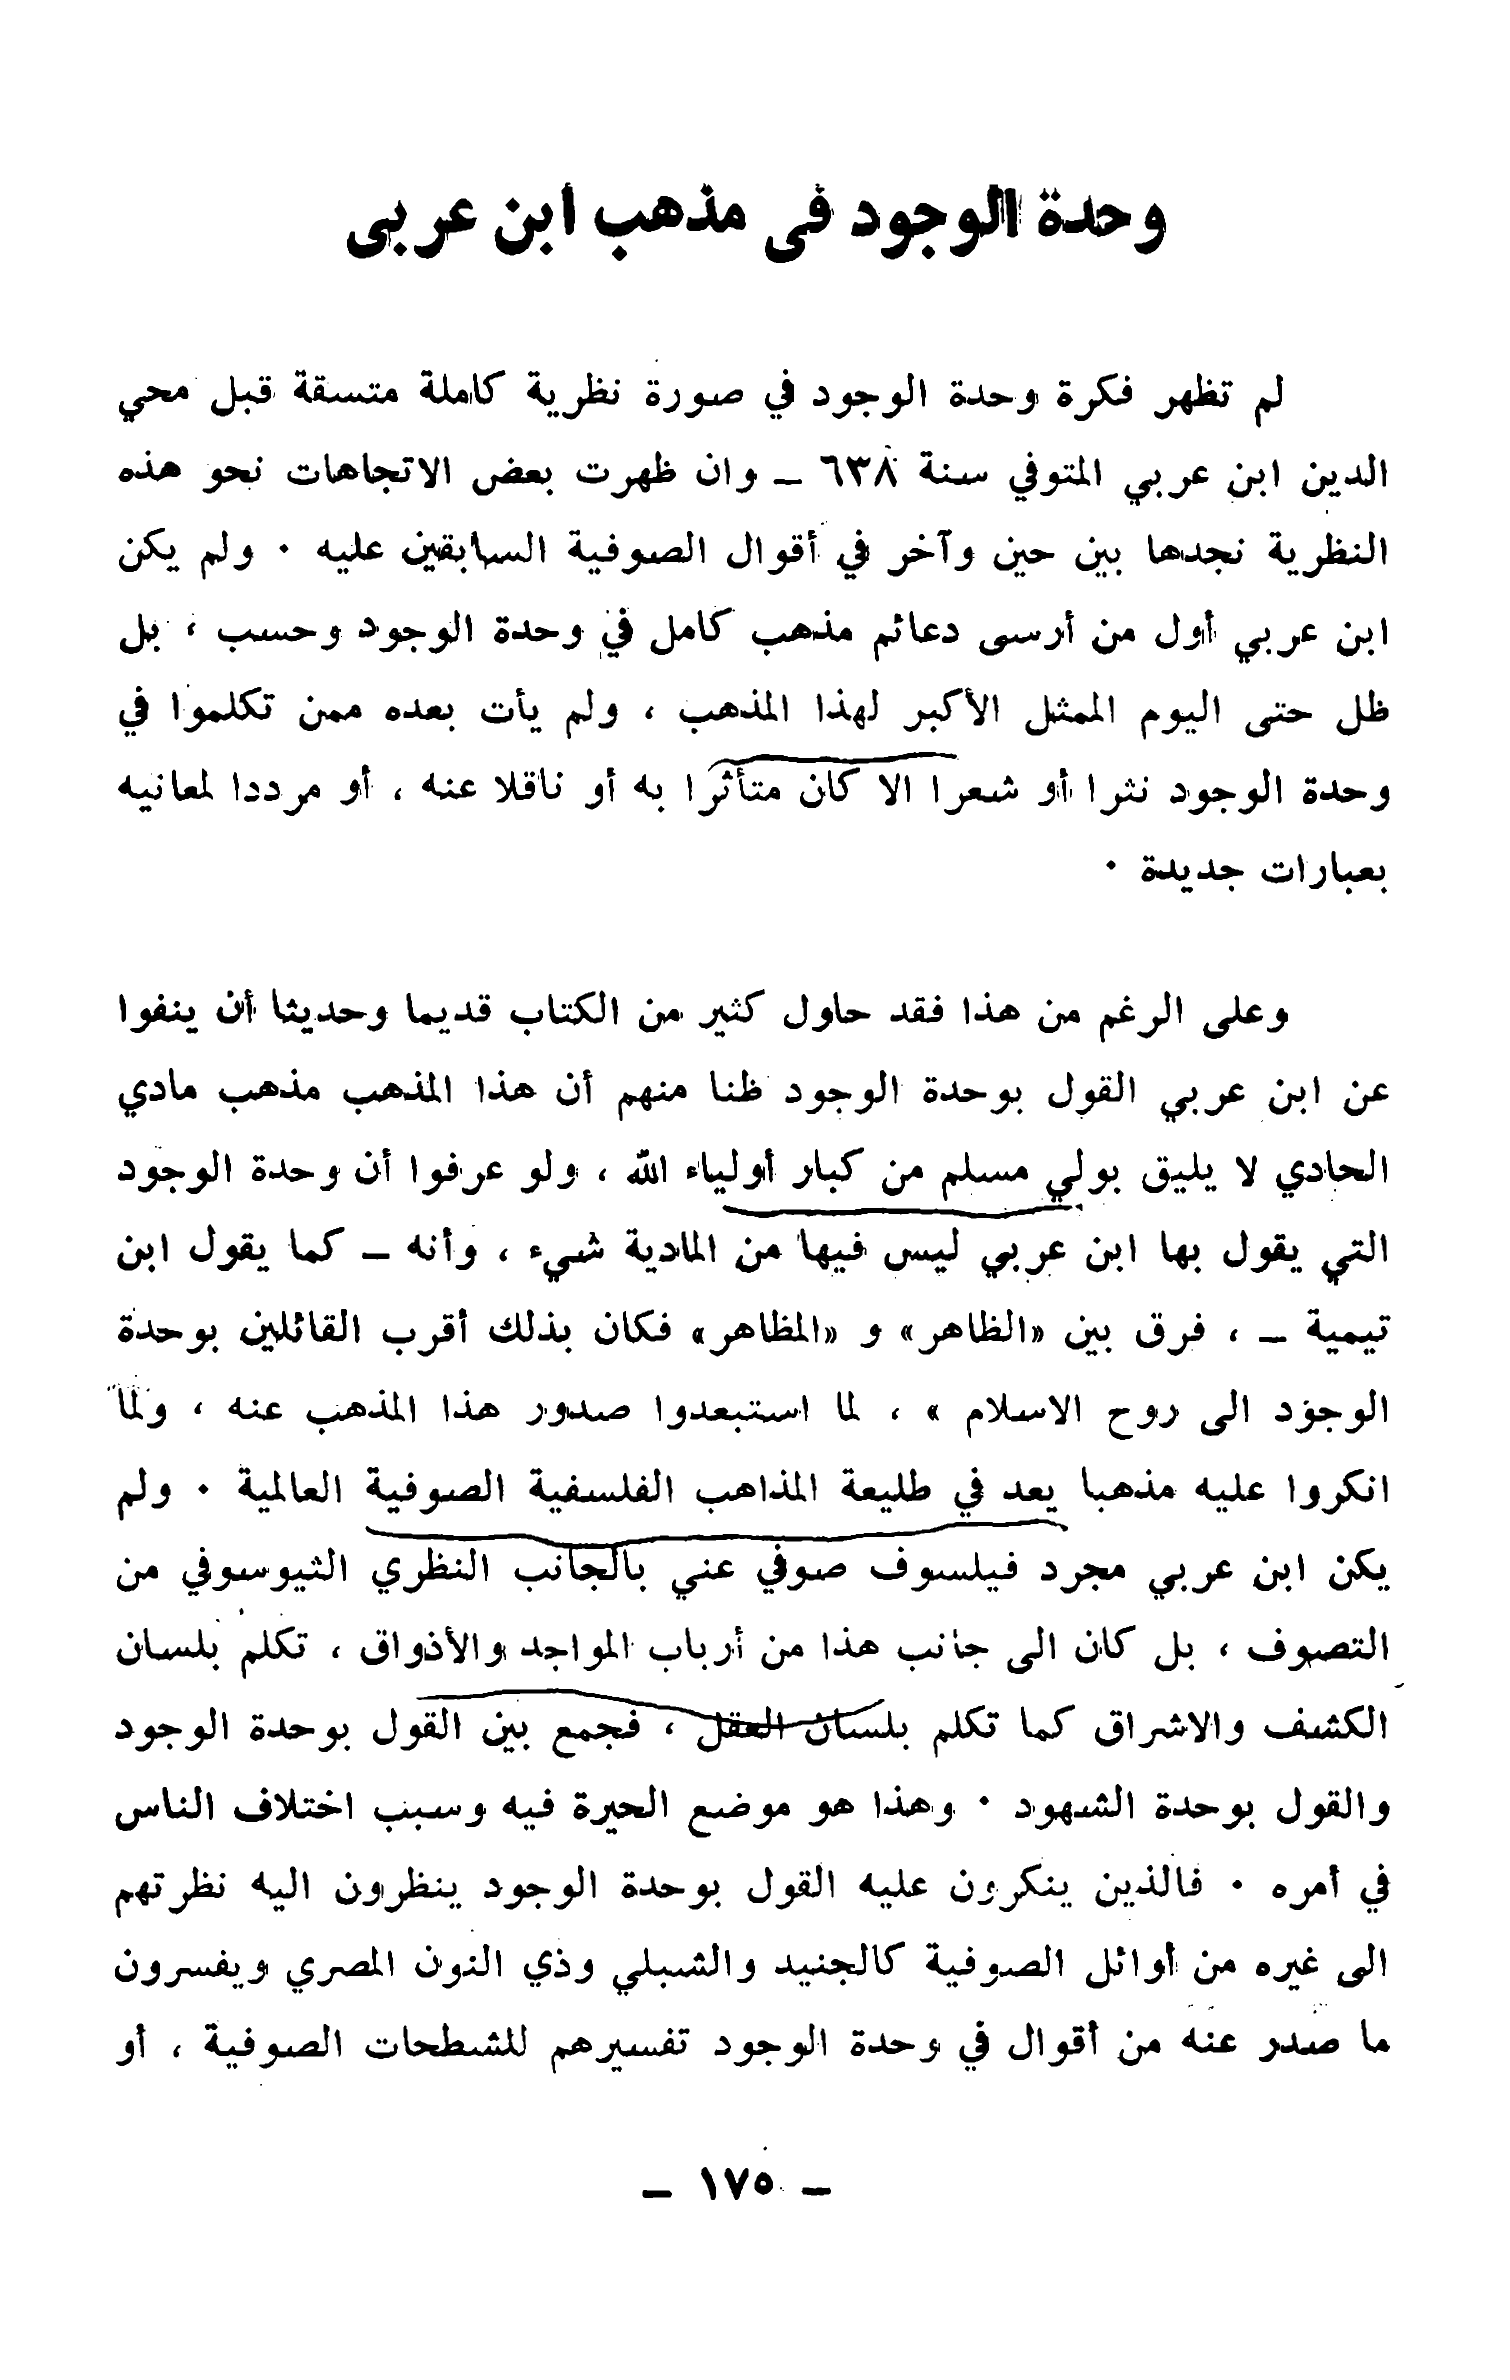 وحدة الوجود في مذهب ابن عربى
لم تظهر فكرة وحدة الوجود في صورة نظرية كاملة متسقة قبل محي
الدين ابن عربي المتوفي سنة ٦٣٨ ـ وان ظهرت بعض الاتجاهات نحو هذه
النظرية نجدها بين حين وآخر في أقوال الصوفية السابقين عليه ٠ ولم يكن
ابن عربي أول من أرسى دعائم مذهب كامل في وحدة الوجود وحسب ، بل
ظل حتى اليوم الممثل الأكبر لهذا المذهب ، ولم يأت بعده ممن تكلموا في
وحدة الوجود نثرا أو شعرا الا كان متأثرا به أو ناقلا عنه ، أو مرددا لمعانيه
بعبارات جديدة ٠
وعلى الرغم من هذا فقد حاول كثير من الكتاب قديما وحديثا أن ينفوا
عن ابن عربي القول بوحدة الوجود ظنا منهم أن هذا المذهب مذهب مادي
الحادي لا يليق بولي مسلم من كبار أولياء الله ، ولو عرفوا أن وحدة الوجود
التي يقول بها ابن عربي ليس فيها من المادية شيء ، وأنه ـ كما يقول ابن
تيمية ـ ، فرق بين «الظاهر» و «المظاهر» فكان بذلك أقرب القائلين بوحدة
الوجود الى روح الاسلام » ، لما استبعدوا صدور هذا المذهب عنه ، ولما
انكروا عليه مذهبا يعد في طليعة المذاهب الفلسفية الصوفية العالمية ٠ ولم
يكن ابن عربي مجرد فيلسوف صوفي عني بالجانب النظري الثيوسوفي من
التصوف ، بل كان الى جانب هذا من أرباب المواجد والأذواق ، تكلم بلسان
الكشف والاشراق كما تكلم بلسان العقل ، فجمع بين القول بوحدة الوجود
والقول بوحدة الشهود ٠ وهذا هو موضع الحيرة فيه وسبب اختلاف الناس
في أمره ٠ فالذين ينكرون عليه القول بوحدة الوجود ينظرون اليه نظرتهم
الى غيره من أوائل الصوفية كالجنيد والشبلي وذي النون المصري ويفسرون
ما صدر عنه من أقوال في وحدة الوجود تفسيرهم للشطحات الصوفية ، أو
ـ ١٧٥ ـ